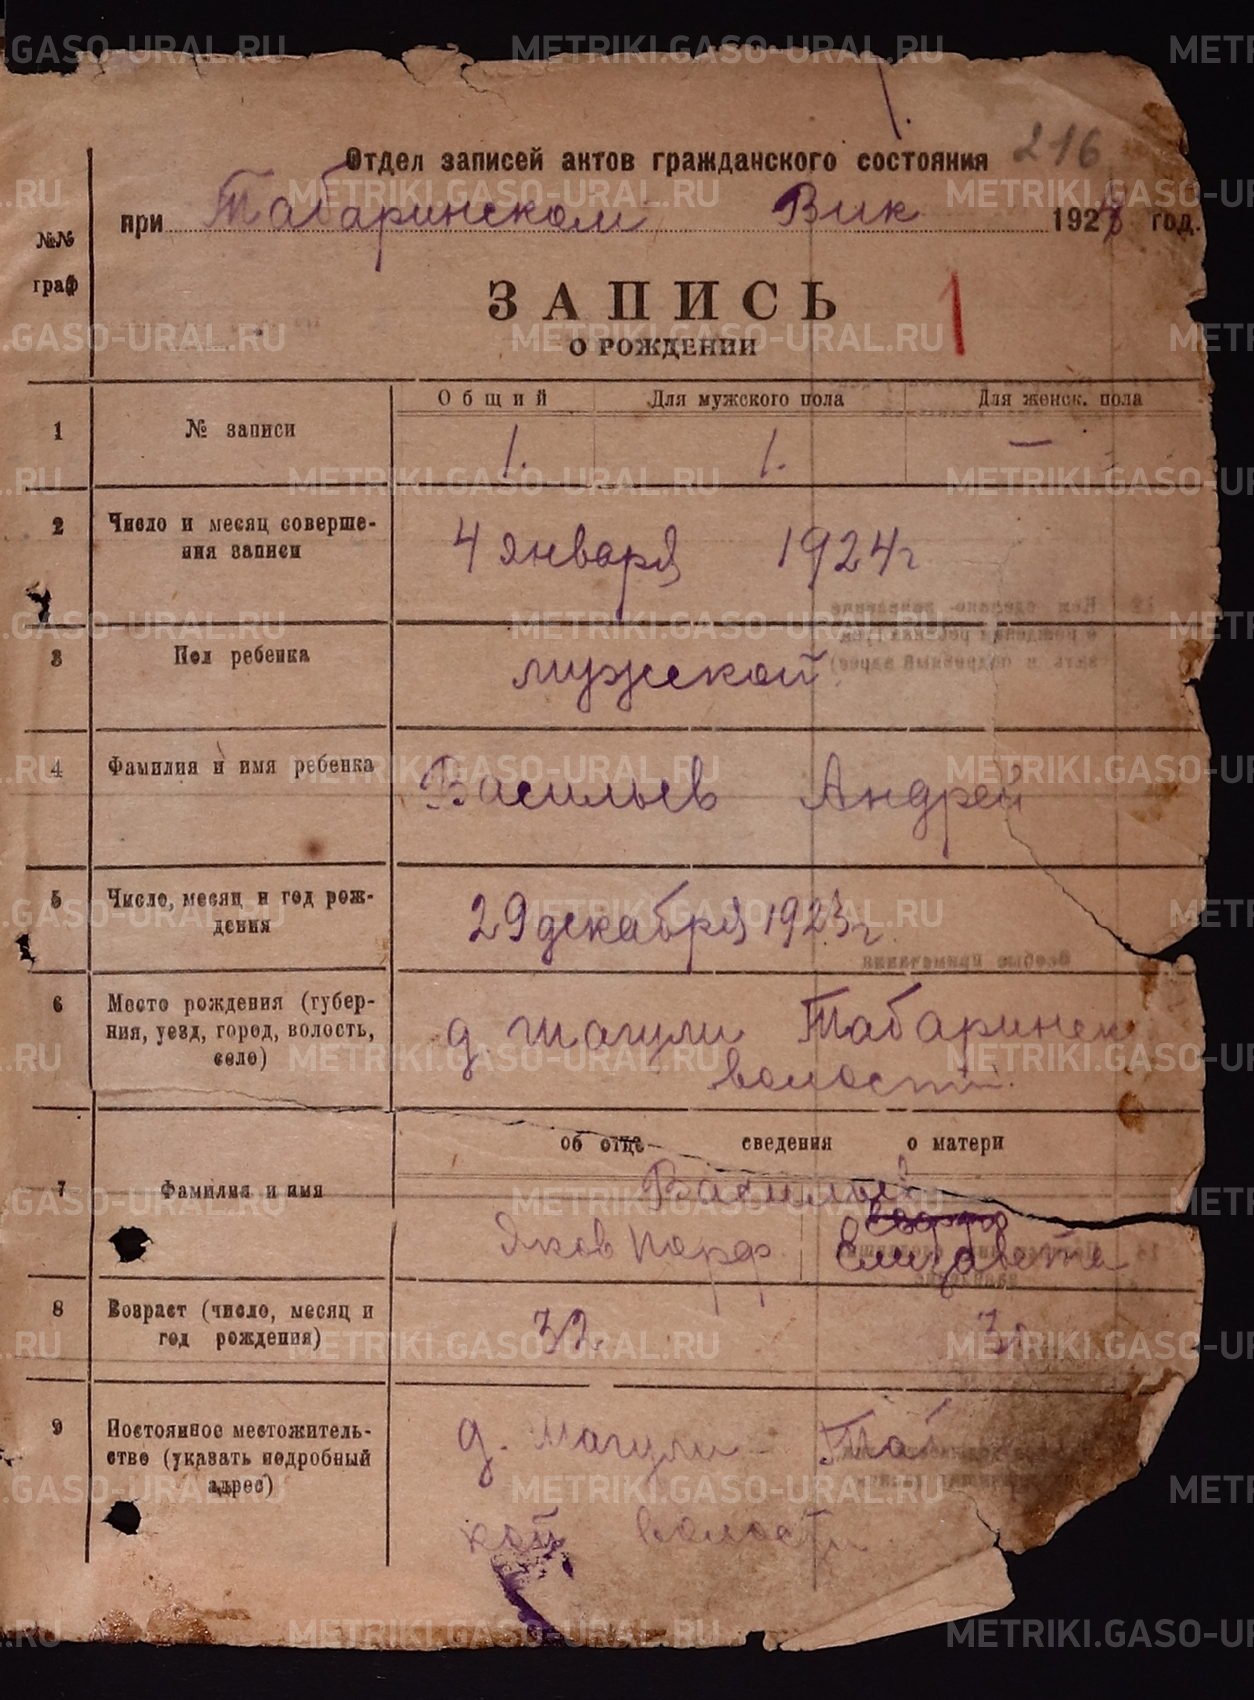 METRIKI.GASO-URAL.RU
216
Отдел записей актов гражданского состояния
при Табаринском Вик 1924 год.
№№ граф
ЗАПИСЬ
О РОЖДЕНИИ
1
Общий Для мужского пола Для женск. пола
1 № записи 1. 1. —
2 Число и месяц соверше-
ния записи
4 января 1924 г
3 Пол ребенка мужской
4 Фамилия и имя ребенка Васильев Андрей
5 Число, месяц и год рож-
дения
29 декабря 1923 г.
6 Место рождения (губер-
ния, уезд, город, волость,
село)
д. Шагули Табаринск
волости.
об отце сведения о матери
7 Фамилия и имя
Васильев
Яков Порф. Елизавета
8 Возраст (число, месяц и
год рождения)
32
9 Постоянное местожитель-
ство (указать подробный
адрес)
д. Шагули Таб
кой волости